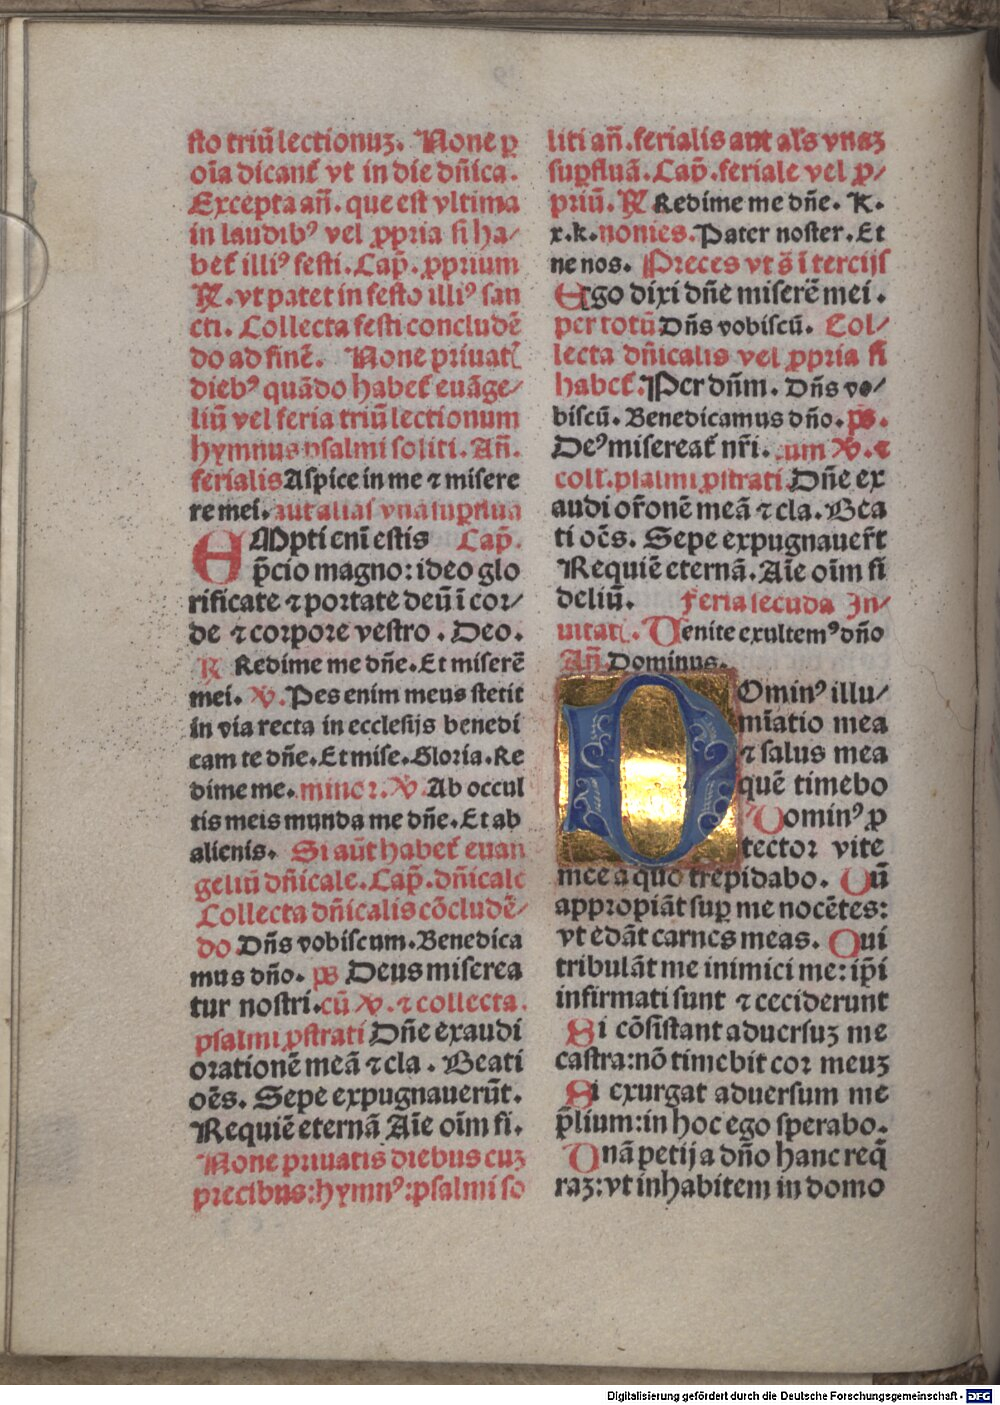 sto triū lectionuz. None ꝑ
oīa dicant᷑ vt in die dn̄ica.
Excepta an̄. que est vltima
in laudibꝰ vel ꝓpria si ha/
bet᷑ illiꝰ festi. Cap̄. ꝓprium
℟. vt patet in festo illiꝰ san
cti. Collecta festi concludē
do ad finē. None priuat̄
diebꝰ quādo habet᷑ euāge/
liū vel feria triū lectionum
hymnus psalmi soliti. An̄.
ferialis Aspice in me ⁊ misere
re mei. aut alias vna suꝑflua
EMpti eni̅ estis Cap̄.
p̄cio magno: ideo glo
rificate ⁊ portate deū ī cor/
de ⁊ corpore vestro. Deo.
℟ Redime me dn̄e. Et miserē
mei. ℣. Pes enim meus stetit
in via recta in ecclesijs benedi
cam te dn̄e. Et mise. Gloria. Re
dime me. minor. ℣. Ab occul
tis meis munda me dn̄e. Et ab
alienis. Si aūt habet᷑ euan
geliū dn̄icale. Cap̄. dn̄icale
Collecta dn̄icalis cōcludē/
do Dn̄s vobiscum. Benedica
mus dn̄o. ps Deus miserea
tur nostri. cū ℣. ⁊ collecta.
psalmi ꝓstrati Dn̄e exaudi
orationē meā ⁊ cla. Beati
oēs. Sepe expugnauerūt.
Requiē eternā Aīe oīm fi.
None priuatis diebus cuz
precibus: hymnꝰ: psalmi so
liti an̄. ferialis aut al's vnaz
suꝑfluā. Cap̄. feriale vel ꝓ/
priū. ℟ Redime me dn̄e. K.
x. k. nonies. Pater noster. Et
ne nos. Preces vt s̄ ī tercijs
Ego dixi dn̄e miserē mei.
per totū Dn̄s vobiscū. Col/
lecta dn̄icalis vel ꝓpria si
habet᷑. Per dn̄m. Dn̄s vo/
biscū. Benedicamus dn̄o. ps.
Deꝰ misereat᷑ nr̄i. cum ℣. ⁊
coll̄. psalmi ꝓstrati Dn̄e ex
audi or̄onē meā ⁊ cla. Bea
ti oēs. Sepe expugnauer̄t
Requiē eternā. Aīe oīm fi
deliū. Feria secūda In/
uitat̄. Uenite exultemꝰ dn̄o
An̄. Dominus.
DOminꝰ illu/
mīatio mea
⁊ salus mea
quē timebo
Dominꝰ ꝓ
tector vite
mee a quo trepidabo. Dū
appropiāt suꝑ me nocētes:
vt edāt carnes meas. Qui
tribulāt me inimici me: ip̄i
infirmati sunt ⁊ ceciderunt
Si cōsistant aduersuz me
castra: nō timebit cor meuz
Si exurgat aduersum me
p̄lium: in hoc ego sperabo.
Unā petij a dn̄o hanc req̄
raz: vt inhabitem in domo
Digitalisierung gefördert durch die Deutsche Forschungsgemeinschaft - DFG